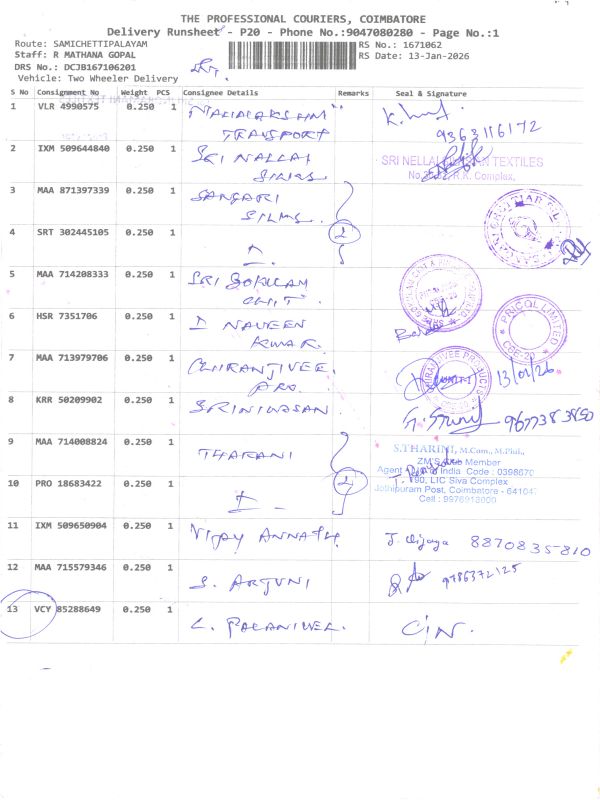 THE PROFESSIONAL COURIERS, COIMBATORE
Delivery Runsheet - P20 - Phone No.:9047080280 - Page No.:1
Route: SAMICHETTIPALAYAM
RS No.: 1671062
Staff: R MATHANA GOPAL
RS Date: 13-Jan-2026
DRS No.: DCJB167106201
Vehicle: Two Wheeler Delivery
S No Consignment No Weight PCS Consignee Details Remarks Seal & Signature
1 VLR 4990575 0.250 1
TRANSPORT 9363116172
2 IXM 509644840 0.250 1 SRI NALLAI
SRI NELLAI TEXTILES
R.K. Complex,
3 MAA 871397339 0.250 1 SANGARI
4 SRT 302445105 0.250 1 2
5 MAA 714208333 0.250 1 SRI GOKULAM
6 HSR 7351706 0.250 1 NAVEEN
KUMAR
PRICOL LIMITED
CBE-20
7 MAA 713979706 0.250 1 CHIRANJIVEE
UNIT-1
13/01/26
8 KRR 50209902 0.250 1 SRINIVASAN
9 MAA 714008824 0.250 1 THARANI
S.THARINI, M.Com., M.Phil.,
ZM'S Club Member
Agent of India Code : 0398670
10 PRO 18683422 0.250 1 2
190, LIC Siva Complex
Jothipuram Post, Coimbatore - 641047
Cell : 9976913000
11 IXM 509650904 0.250 1 VIJAY J. Vijaya 8870835810
12 MAA 715579346 0.250 1 S. ARJUNI 9786372125
13 VCY 85288649 0.250 1 C. PALANIVEL.